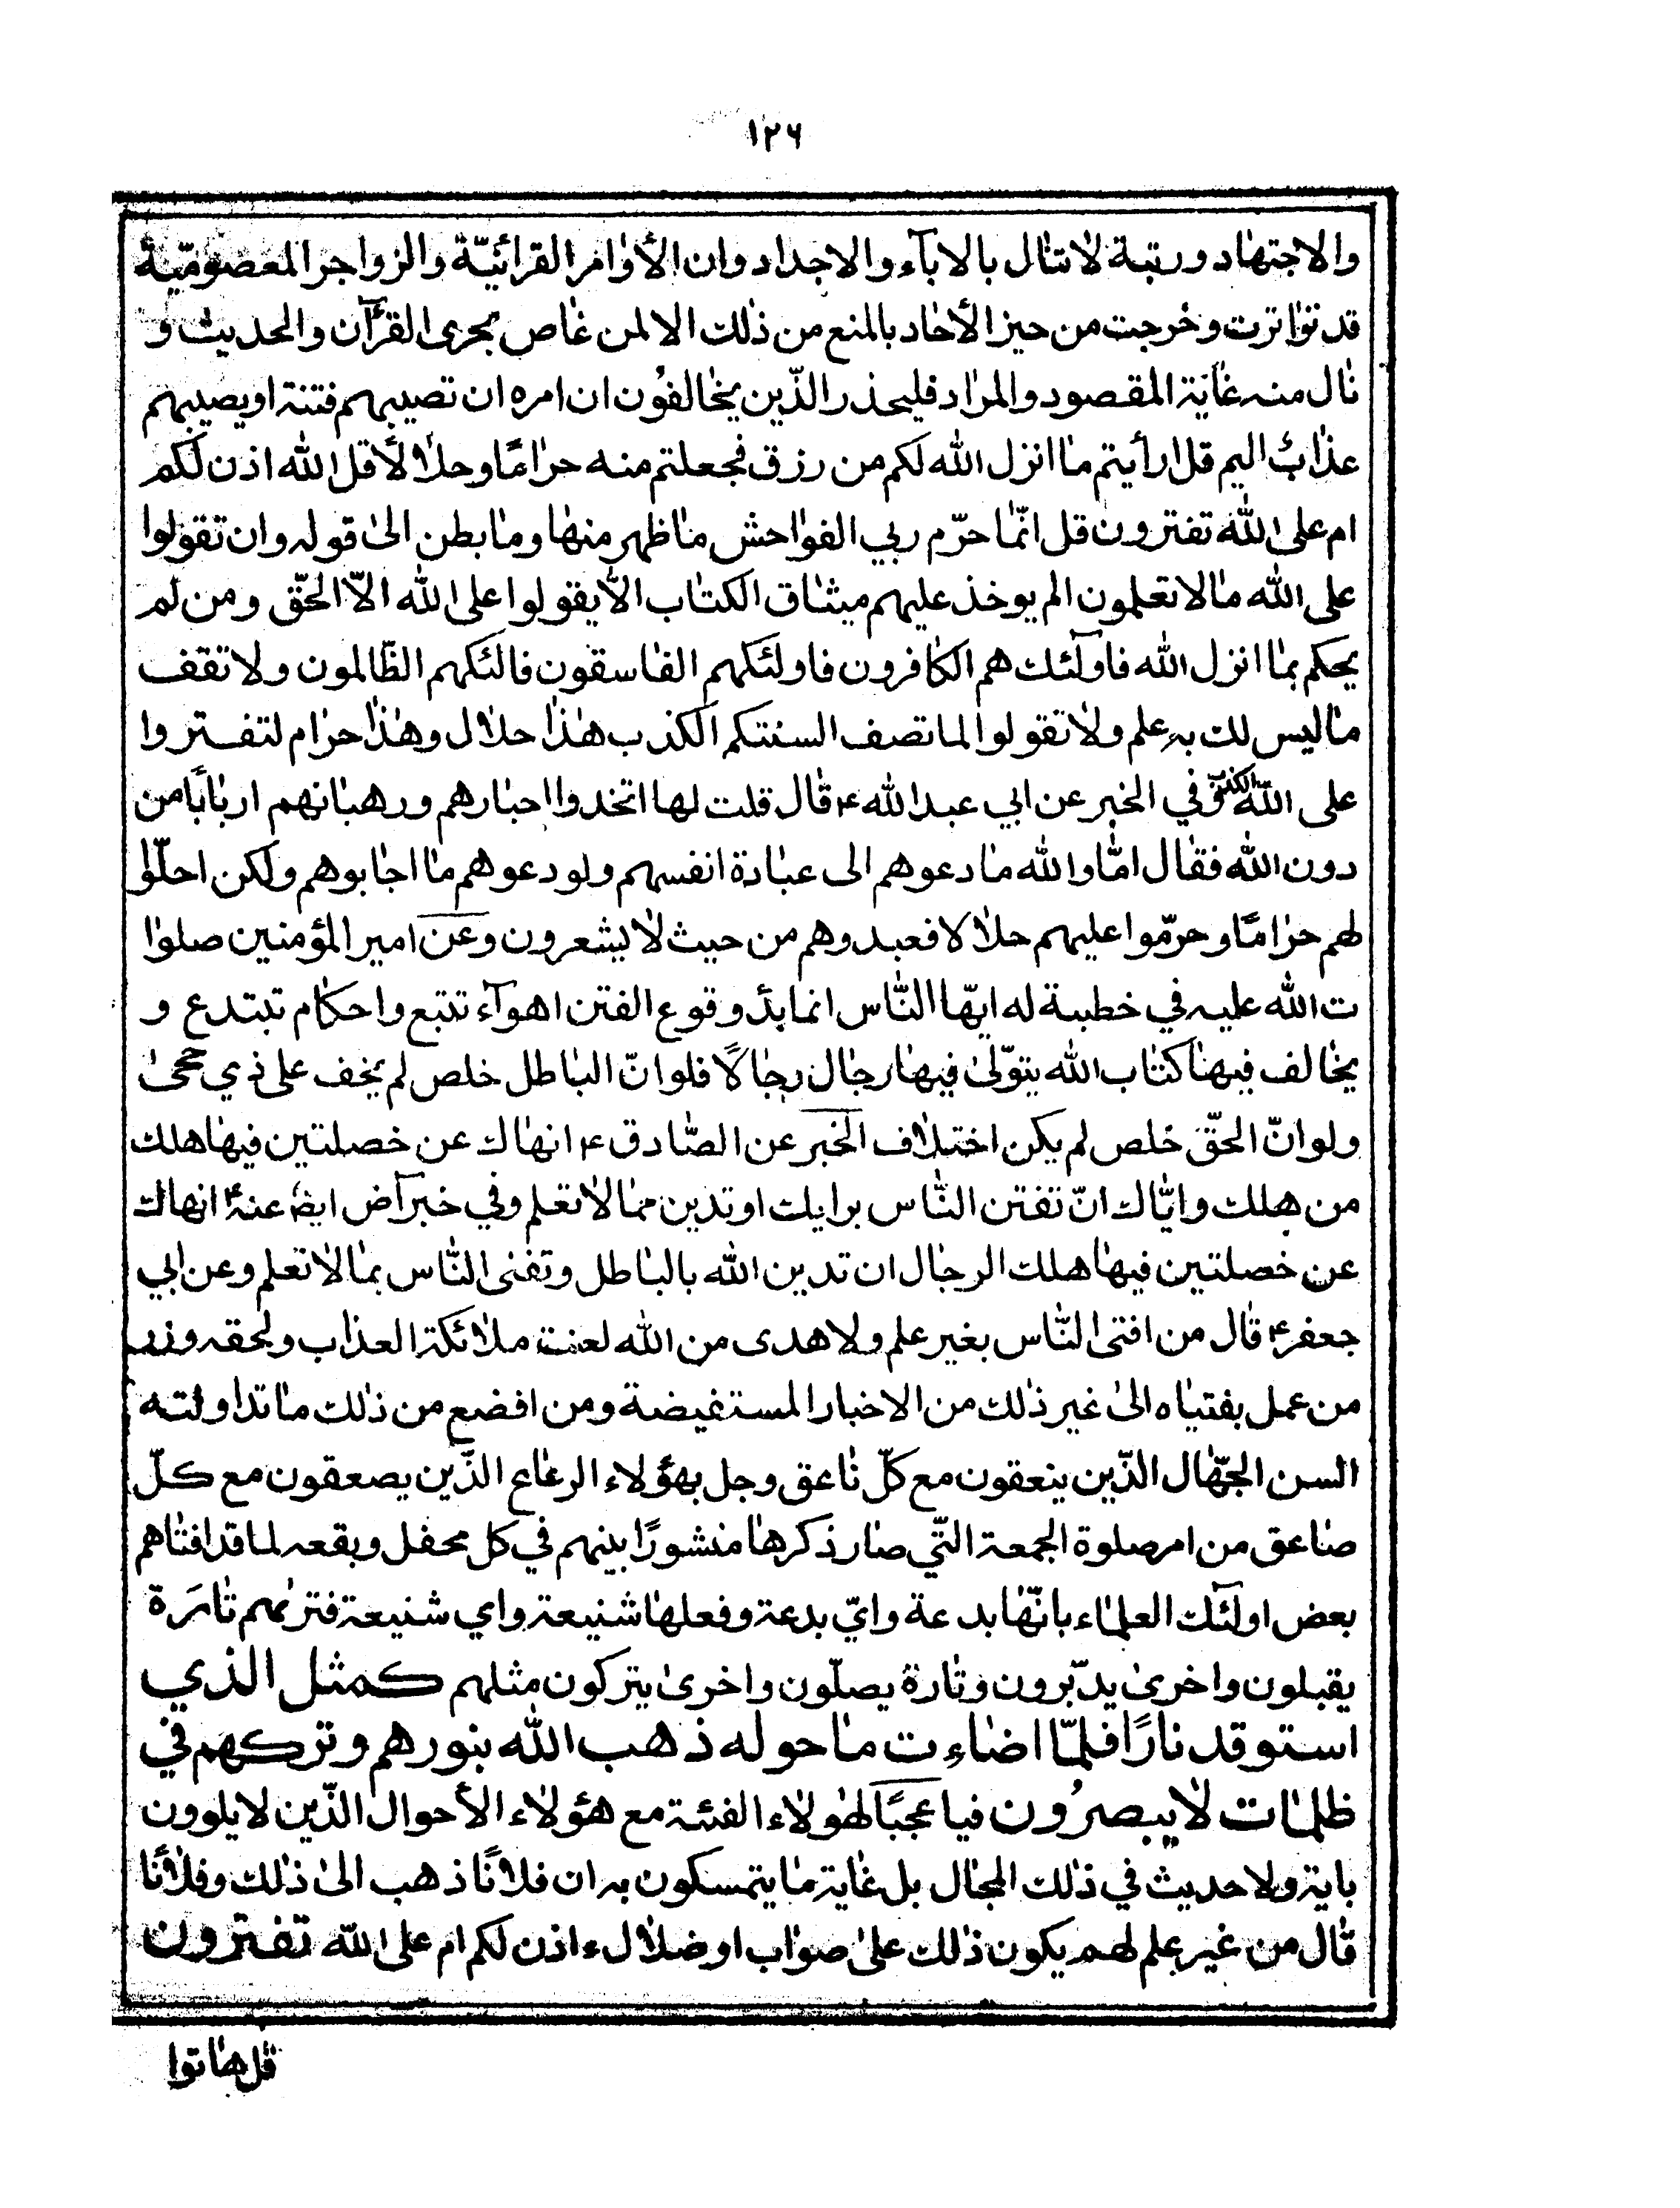 ١٢٦
والاجتهاد ورتبة لا تنال بالاباء والاجداد وان الأوامر القرائنيّة والزواجر المعصوميّة
قد تواترت وخرجت من حيز الأحاد بالمنع من ذلك الا لمن غاص بجرى القرآن والحديث و
نال منه غاية المقصود والمراد فليحذر الّذين يخالفون ان امره ان تصيبهم فتنة او يصيبهم
عذاب اليم قل ارأيتم ما انزل الله لكم من رزق فجعلتم منه حرامًا وحلالًا قل الله اذن لكم
ام على الله تفترون قل انّما حرّم ربي الفواحش ما ظهر منها وما بطن الى قوله وان تقولوا
على الله ما لا تعلمون الم يوخذ عليهم ميثاق الكتاب الّا يقولوا على الله الّا الحّق ومن لم
يحكم بما انزل الله فاولٓئك هم الكافرون فاولئكهم الفاسقون فالئكهم الظّالمون ولا تقف
ما ليس لك به علم ولا تقولوا لما تصف السنتكم الكذب هذا حلال وهذا حرام لتفتروا
على اللّه الكذب وفي الخبر عن ابي عبد الله ع قال قلت لها اتخدوا احبارهم ورهبانهم اربابًا من
دون الله فقال امّا والله ما دعوهم الى عبادة انفسهم ولو دعوهم ما اجابوهم ولكن احلّوا
لهم حرامًا وحرّموا عليهم حلالا فعبدوهم من حيث لا يشعرون وعن امير المؤمنين صلوا
ت الله عليه في خطبة له ايّها النّاس انما بدأ وقوع الفتن اهوآء تتبع واحكام تبتدع و
يخالف فيها كتاب الله يتوّلى فيها رجال رجالًا فلو انّ الباطل خلص لم يخف على ذي حجى
ولو انّ الحّق خلص لم يكن اختلاف الخبر عن الصّادق ع انهاك عن خصلتين فيها هلك
من هلك وايّاك انّ تفتن النّاس برايك او تدين مما لا تعلم وفي خبر آض ايضا عنه ع انهاك
عن خصلتين فيها هلك الرجال ان تدين الله بالباطل وتفنى النّاس بما لا تعلم وعن ابي
جعفر ع قال من افتى النّاس بغير علم ولا هدى من الله لعنت ملائكة العذاب ولحقه وزر
من عمل بفتياه الى غير ذلك من الاخبار المستفيضة ومن افضع من ذلك ما تداولته
السن الجهّال الّذين ينعقون مع كلّ ناعق وجل بهؤلاء الرعاع الّذين يصعقون مع كلّ
صاعق من امر صلوة الجمعة التّي صار ذكرها منشورًا بينهم في كل محفل وبقعه لما قد افتاهم
بعض اولٓئك العلماء بانّها بدعة وايّ بدعة وفعلها شنيعة واي شنيعة فتريهم تارَة
يقبلون واخرى يدّبرون وتارة يصلّون واخرى يتركون مثلهم كمثل الذي
استوقد نارًا فلمّا اضاءت ما حوله ذهب الله بنورهم وتركهم في
ظلمات لا يبصرُون فيا عجبًا لهولاء الفئة مع هؤلاء الأحوال الّذين لا يلوون
باية ولا حديث في ذلك المجال بل غاية ما يتمسكون به ان فلانًا ذهب الى ذلك وفلانًا
قال من غير علم لهم يكون ذلك على صواب او ضلال ءاذن لكم ام على اللّه تفترون
قل هاتوا